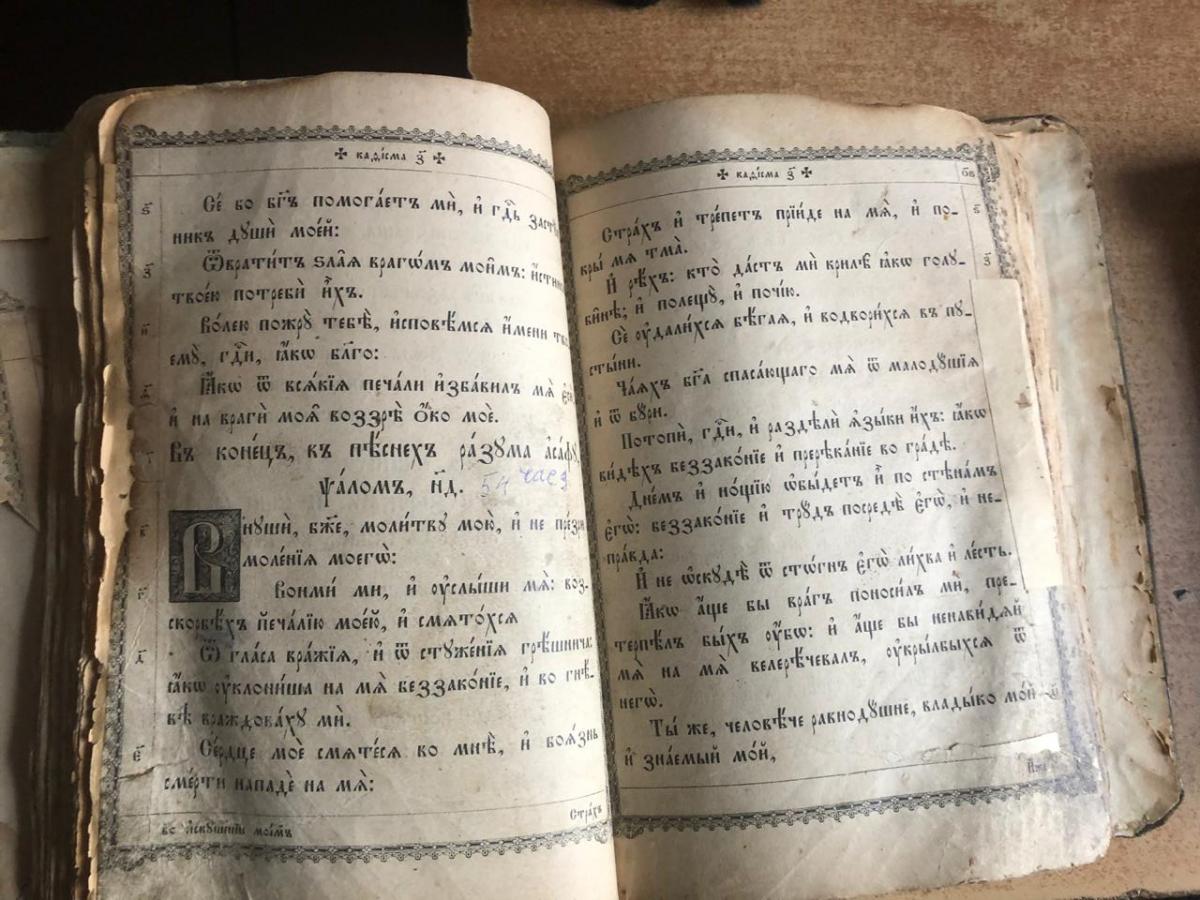 ✠ каѳі́сма з҃ ✠
ѕ҃
Се́ бо бг҃ъ помога́етъ мѝ, и҆ гдⷭ҇ь
никъ дꙋшѝ мое́й:
з҃
Ѿврати́тъ ѕла̑ѧ врагѡ́мъ мои̑мъ:
твое́ю потребѝ и҆̀хъ.
и҃
Во́лею пожрꙋ̀ тебѣ̀, и҆сповѣ́мсѧ и҆́мени
емꙋ̀, гдⷭ҇и, ꙗ҆́кѡ бл҃го:
Ꙗ҆́кѡ ѿ всѧ́кїѧ печа́ли и҆зба́вилъ мѧ̀
и҆ на врагѝ моѧ̑ воззрѣ̀ ѻ҆́ко моѐ.
Въ коне́цъ, въ пѣ́снехъ ра́зꙋма а҆са́фꙋ,
ѱало́мъ, н҃д. 54 час 9
в҃
Внꙋшѝ, бж҃е, моли́твꙋ мою̀, и҆ не
моле́нїѧ моегѡ̀:
г҃
Вонми́ ми, и҆ ᲂу҆слы́ши мѧ̀: воз-
скорбѣ́хъ печа́лїю мое́ю, и҆ смѧто́хсѧ
д҃
Ѿ гла́са вра́жїѧ, и҆ ѿ стꙋже́нїѧ грѣ́шнича:
ꙗ҆́кѡ ᲂу҆клони́ша на мѧ̀ беззако́нїе, и҆ во гнѣ́-
вѣ враждова́хꙋ мѝ.
є҃
Се́рдце моѐ смѧте́сѧ во мнѣ̀, и҆ боѧ́знь
сме́рти нападѐ на мѧ̀:
Стра́хъ
во и҆скꙋше́нїи мое́мъ
✠ каѳі́сма з҃ ✠
ѯв
ѕ҃
Стра́хъ и҆ тре́петъ прїи́де на мѧ̀, и҆ по-
кры́ мѧ тма̀.
з҃
И҆ рѣ́хъ: кто̀ да́стъ мѝ крилѣ̀ ꙗ҆́кѡ голꙋ-
би̑нѣ; и҆ полещꙋ̀, и҆ почі́ю.
Сѐ ᲂу҆дали́хсѧ бѣ́гаѧ, и҆ водвори́хсѧ въ пꙋ-
сты́ни.
Ча́ѧхъ бг҃а спаса́ющаго мѧ̀ ѿ малодꙋ́шїѧ
и҆ ѿ бꙋ́ри.
Потопѝ, гдⷭ҇и, и҆ раздѣлѝ ѧ҆зы́ки и҆́хъ: ꙗ҆́кѡ
ви́дѣхъ беззако́нїе и҆ пререка́нїе во гра́дѣ.
Дне́мъ и҆ но́щїю ѡ҆бы́детъ и҆̀ по стѣна́мъ
є҆гѡ̀: беззако́нїе и҆ трꙋ́дъ посредѣ̀ є҆гѡ̀, и҆ не-
пра́вда:
И҆ не ѡ҆скꙋдѣ̀ ѿ сто́гнъ є҆гѡ̀ ли́хва и҆ ле́сть.
Ꙗ҆́кѡ а҆́ще бы вра́гъ поноси́лъ мѝ, пре-
терпѣ́лъ бы́хъ ᲂу҆́бѡ: и҆ а҆́ще бы ненави́дѧй
мѧ̀ на мѧ̀ велерѣ́чевалъ, ᲂу҆кры́лбыхсѧ ѿ
негѡ̀.
Ты́ же, человѣ́че равнодꙋ́шне, влады́ко мо́й
и҆ зна́емый мо́й,